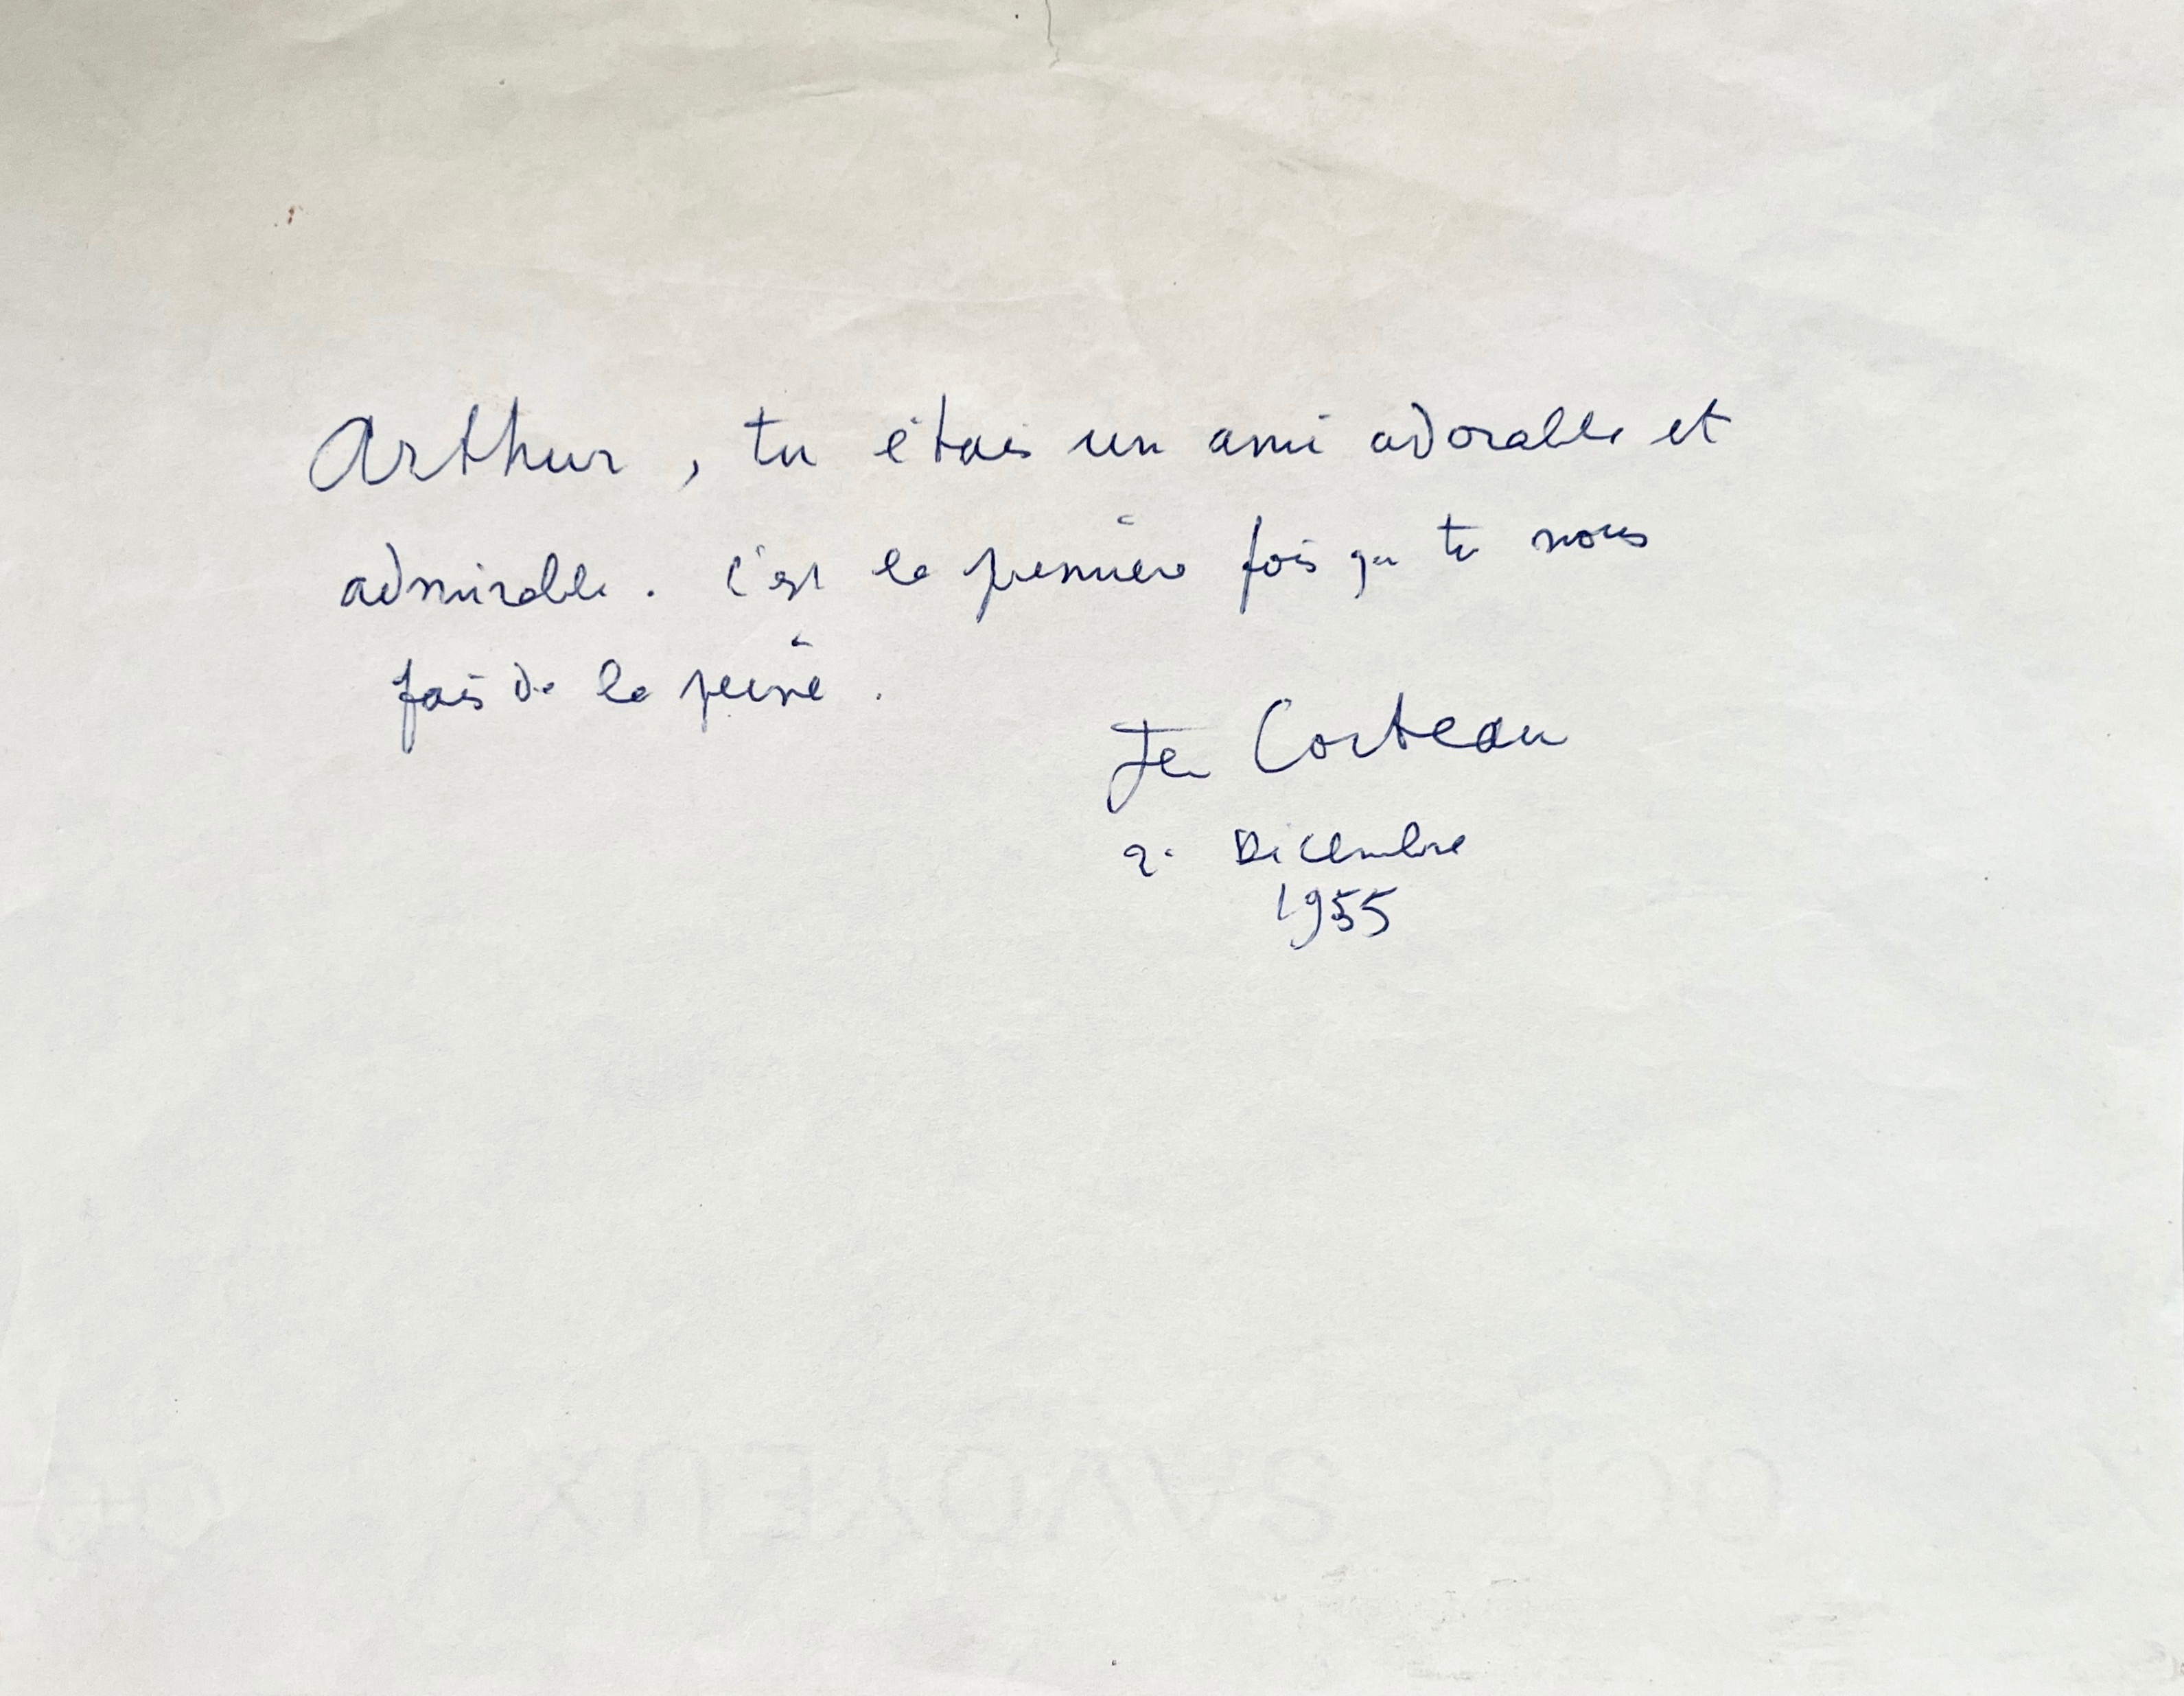 Arthur, tu étais un ami adorable et
admirable. C'est la première fois que tu nous
fais de la peine.
Jean Cocteau
2 Décembre
1955